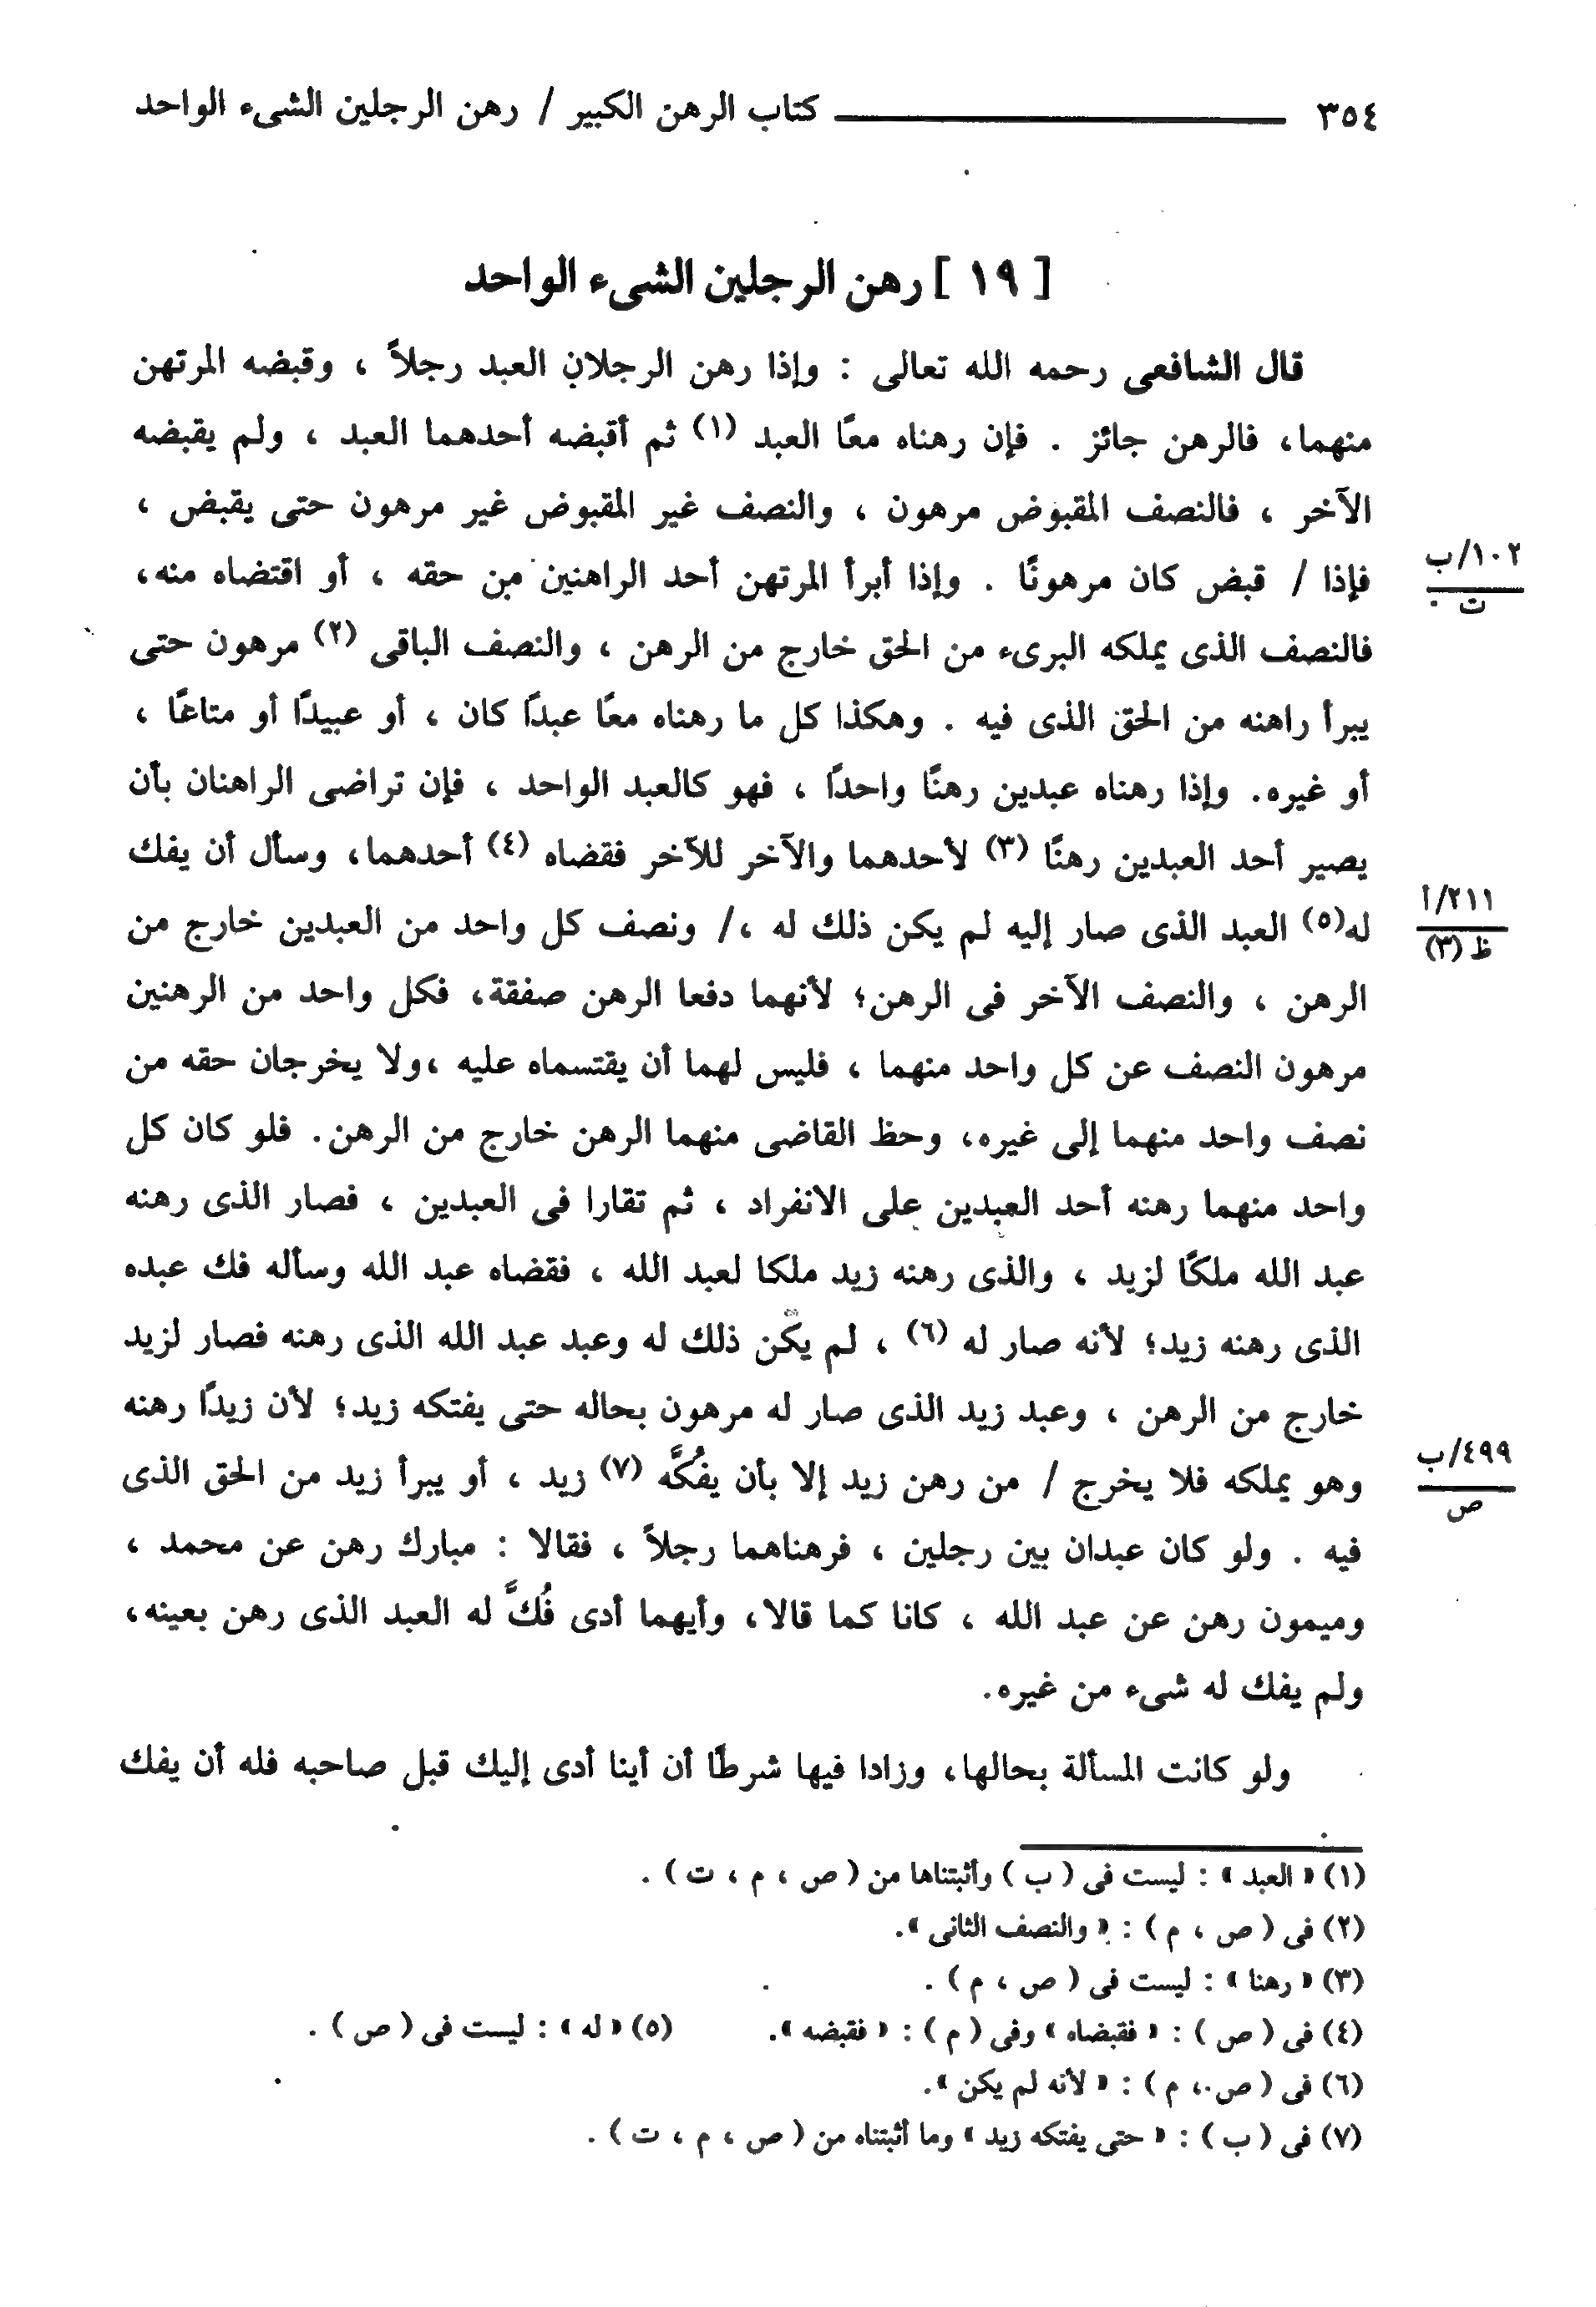 ٣٥٤ ــــــــــــــــــــ كتاب الرهن الكبير / رهن الرجلين الشىء الواحد
[ ١٩ ] رهن الرجلين الشىء الواحد
قال الشافعى رحمه الله تعالى : وإذا رهن الرجلانِ العبد رجلاً ، وقبضه المرتهن
منهما، فالرهن جائز . فإن رهناه معًا العبد (١) ثم أقبضه أحدهما العبد ، ولم يقبضه
الآخر ، فالنصف المقبوض مرهون ، والنصف غير المقبوض غير مرهون حتى يقبض ،
فإذا / قبض كان مرهونًا . وإذا أبرأ المرتهن أحد الراهنين من حقه ، أو اقتضاه منه،
١٠٢/ب
ت
فالنصف الذى يملكه البرىء من الحق خارج من الرهن ، والنصف الباقى (٢) مرهون حتى
يبرأ راهنه من الحق الذى فيه . وهكذا كل ما رهناه معًا عبدًا كان ، أو عبيدًا أو متاعًا ،
أو غيره. وإذا رهناه عبدين رهنًا واحدًا ، فهو كالعبد الواحد ، فإن تراضى الراهنان بأن
يصير أحد العبدين رهنًا (٣) لأحدهما والآخر للآخر فقضاه (٤) أحدهما، وسأل أن يفك
له(٥) العبد الذى صار إليه لم يكن ذلك له ،/ ونصف كل واحد من العبدين خارج من
٢١١/أ
ظ (٣)
الرهن ، والنصف الآخر فى الرهن؛ لأنهما دفعا الرهن صفقة، فكل واحد من الرهنين
مرهون النصف عن كل واحد منهما ، فليس لهما أن يقتسماه عليه ،ولا يخرجان حقه من
نصف واحد منهما إلى غيره، وحظ القاضى منهما الرهن خارج من الرهن. فلو كان كل
واحد منهما رهنه أحد العبدين على الانفراد ، ثم تقارا فى العبدين ، فصار الذى رهنه
عبد الله ملكًا لزيد ، والذى رهنه زيد ملكا لعبد الله ، فقضاه عبد الله وسأله فك عبده
الذى رهنه زيد؛ لأنه صار له (٦) ، لم يكن ذلك له وعبد عبد الله الذى رهنه فصار لزيد
خارج من الرهن ، وعبد زيد الذى صار له مرهون بحاله حتى يفتكه زيد؛ لأن زيدًا رهنه
وهو يملكه فلا يخرج / من رهن زيد إلا بأن يفُكَّه (٧) زيد ، أو يبرأ زيد من الحق الذى
٤٩٩/ب
ص
فيه . ولو كان عبدان بين رجلين ، فرهناهما رجلاً ، فقالا : مبارك رهن عن محمد ،
وميمون رهن عن عبد الله ، كانا كما قالا، وأيهما أدى فُكَّ له العبد الذى رهن بعينه،
ولم يفك له شىء من غيره.
ولو كانت المسألة بحالها، وزادا فيها شرطًا أن أينا أدى إليك قبل صاحبه فله أن يفك
(١) « العبد » : ليست فى ( ب ) وأثبتناها من ( ص ، م ، ت ) .
(٢) فى ( ص ، م ) : « والنصف الثانى ».
(٣) « رهنا » : ليست فى ( ص ، م ) .
(٤) فى ( ص ) : « فقبضاه » وفى ( م ) : « فقبضه ». (٥) « له » : ليست فى ( ص ) .
(٦) فى ( ص ، م ) : « لأنه لم يكن ».
(٧) فى ( ب ) : « حتى يفتكه زيد » وما أثبتناه من ( ص ، م ، ت ) .